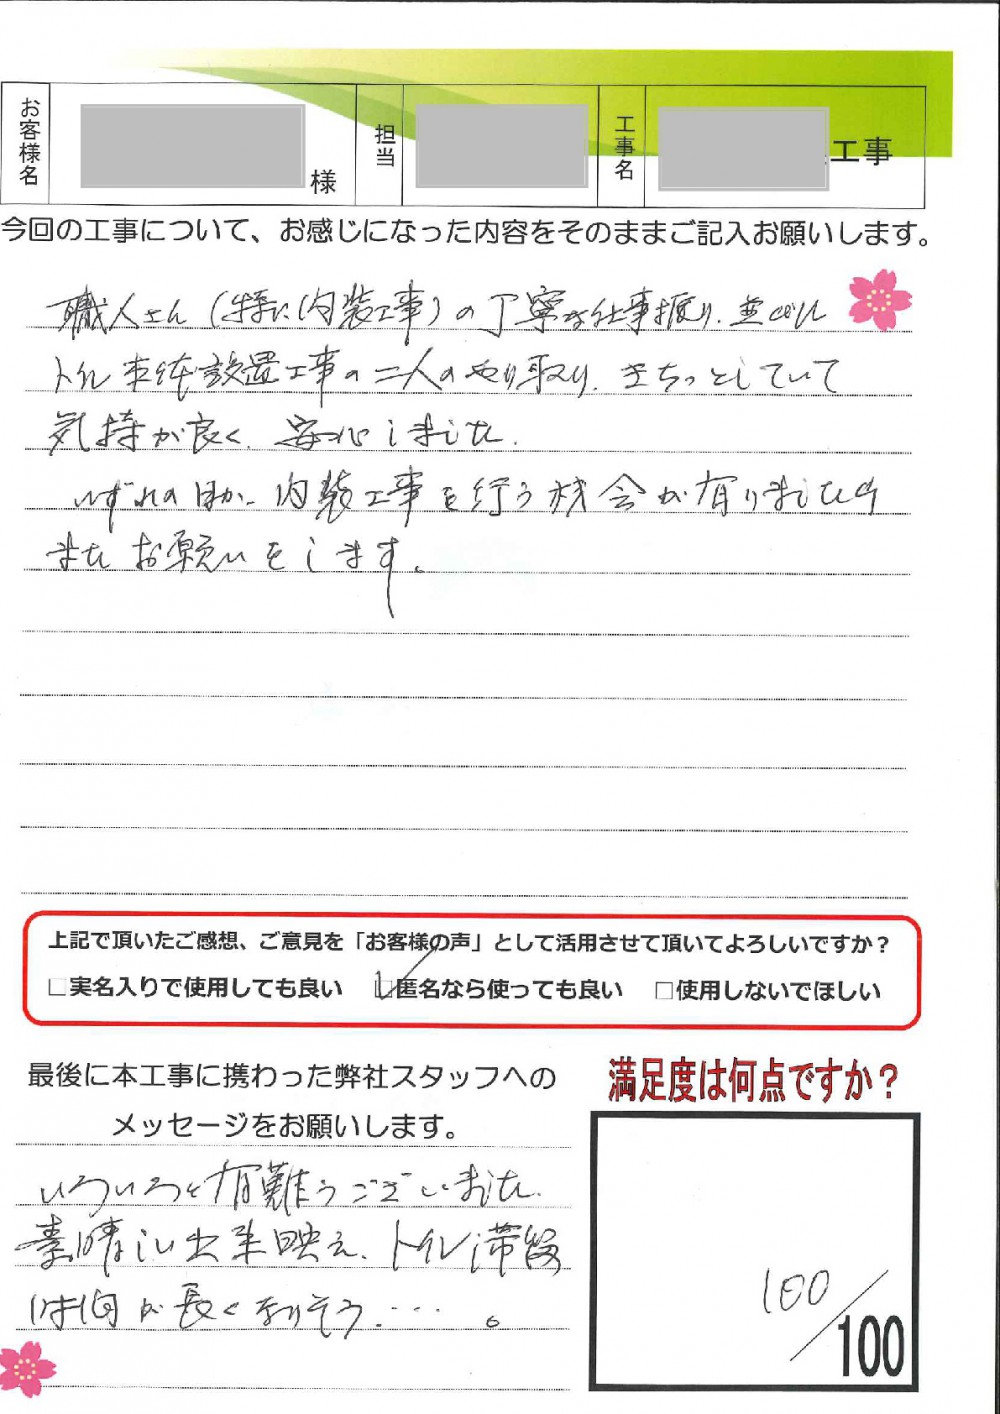 お客様名
様
担当
工事名
工事
今回の工事について、お感じになった内容をそのままご記入お願いします。
職人さん(特に内装工事)の丁寧な仕事振り、並びに
トイレ本体設置工事の二人のやり取り、きちっとしていて
気持が良く、安心しました。
いずれのほか、内装工事を行う機会が有りましたら
またお願いをします。
上記で頂いたご感想、ご意見を「お客様の声」として活用させて頂いてよろしいですか？
□実名入りで使用しても良い ☑匿名なら使っても良い □使用しないでほしい
最後に本工事に携わった弊社スタッフへの
メッセージをお願いします。
いろいろと有難うございました。
素晴しい出来映え、トイレ滞留
時間が長くなりそう‥‥。
満足度は何点ですか？
100/100